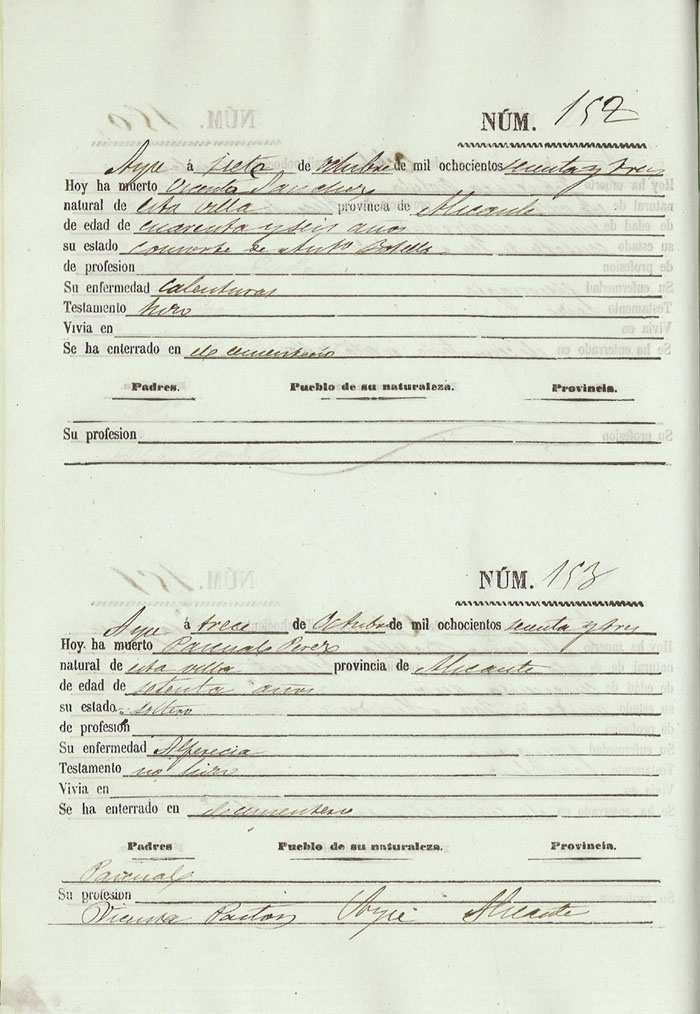 NÚM. 152
Aspe á siete de Octubre de mil ochocientos sesenta y tres
Hoy ha muerto Vicenta Sanchez
natural de esta villa provincia de Alicante
de edad de cuarenta y seis años
su estado consorte de Antº Botella
de profesion
Su enfermedad Calenturas
Testamento hizo
Vivia en
Se ha enterrado en el cementerio
Padres. Pueblo de su naturaleza. Provincia.
Su profesion
NÚM. 153
Aspe á trece de Octubre de mil ochocientos sesenta y tres
Hoy ha muerto Pascual Perez
natural de esta villa provincia de Alicante
de edad de setenta años
su estado soltero
de profesion
Su enfermedad Alferecia
Testamento no hizo
Vivia en
Se ha enterrado en el cementerio
Padres Pueblo de su naturaleza. Provincia.
Pascual
Su profesion
Vicenta Pastor Aspe Alicante